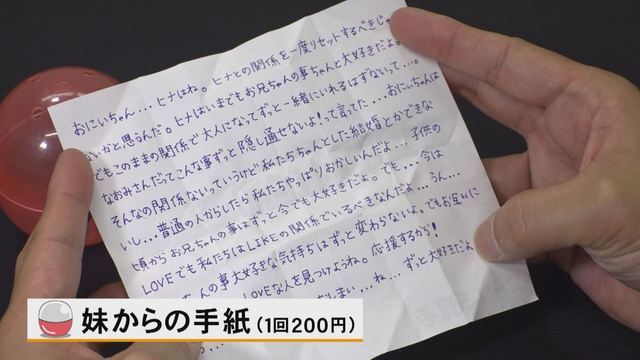 おにいちゃん...ヒナはね。ヒナとの関係を一度リセットするべきじゃ
ないかと思うんだ。ヒナはいまでもお兄ちゃんの事ちゃんと大好きだよ。
でもこのままの関係で大人になってずっと一緒にいれるはずないって...。
なおみさんだってこんな事ずっと隠し通せないよ!って言ってた....おにいちゃんは
そんなの関係ないっていうけど私たちちゃんとした結婚とかできな
いし...普通の人からしたら私たちやっぱりおかしいんだよ...子供の
頃からお兄ちゃんの事はずっと今でも大好きだよ。でも....今は
LOVEでも私たちはLIKEの関係でいるべきなんだよ...うん...
んの事大好きな気持ちはずっと変わらないよ。でもお互いに
LOVEな人を見つけようね。応援するから!
しまい...ね...ずっと大好きだよ
妹からの手紙(1回200円)